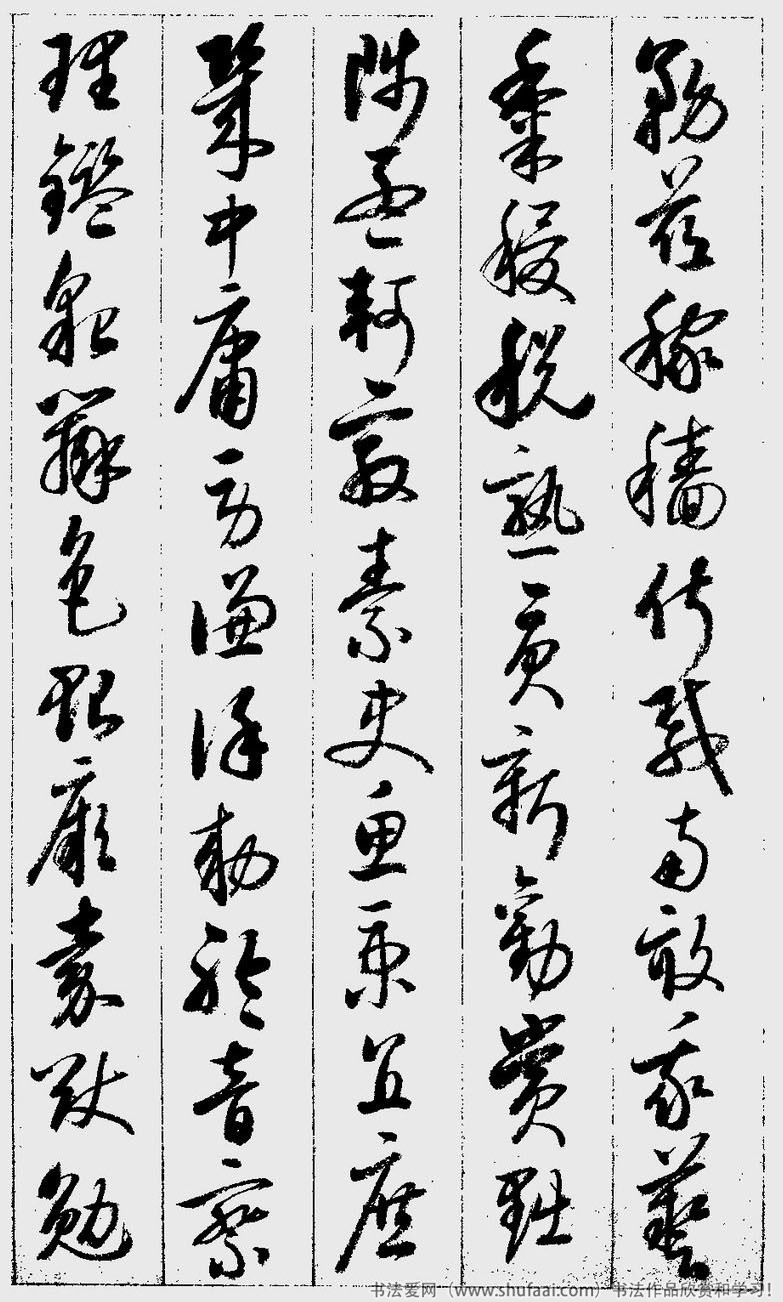 務茲稼穡俶載南畝我藝
黍稷稅熟貢新勸賞黜
陟孟軻敦素史魚秉直庶
幾中庸勞謙謹勅聆音察
理鑑貌辨色貽厥嘉猷勉
书法爱网（www.shufaai.com）书法作品欣赏和学习！